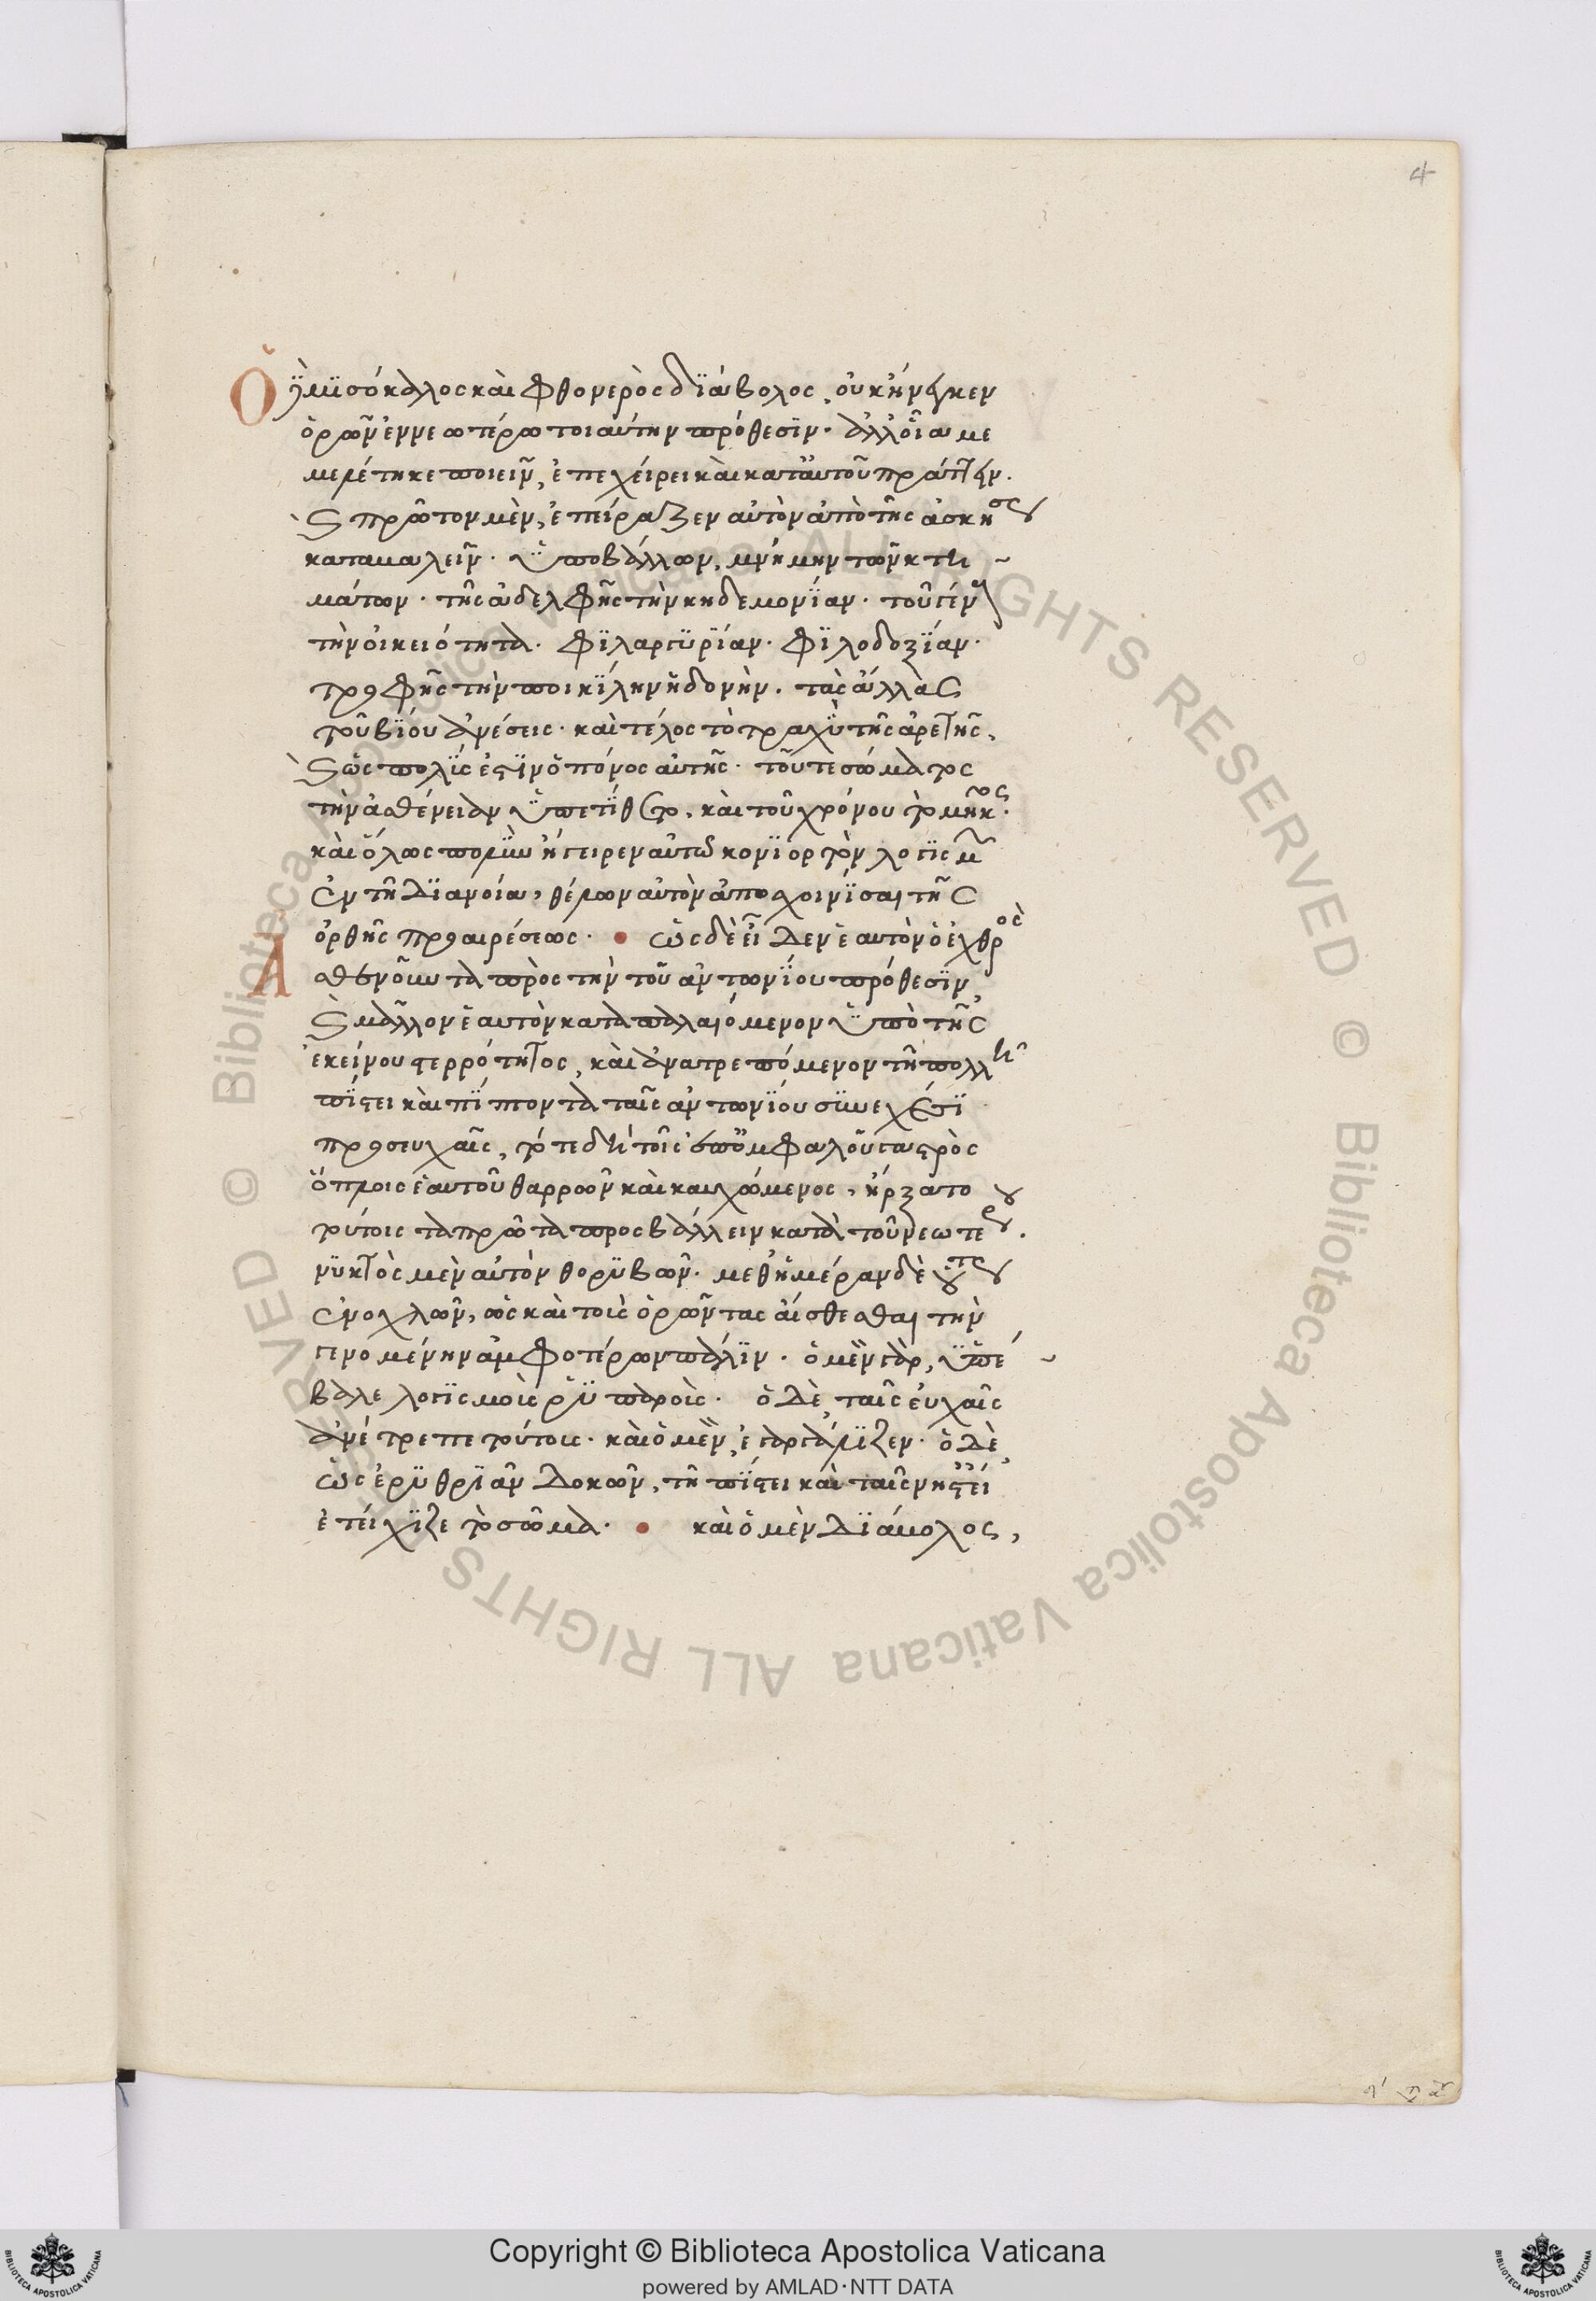 4
Ὁ μϊσόκαλος καὶ φθονερὸς δϊάβολος, οὐκ ἤνεγκεν
ὁρῶν ἐν νεωτέρω τοιαύτην πρόθεσϊν· ἀλλ' οἷα με
μελέτηκε ποιεῖν, ἐπεχείρει καὶ κατ' αὐτοῦ πράττειν.
καὶ πρῶτον μὲν, ἐπείραζεν αὐτὸν ἀπὸ τῆς ἀσκήσεως
καταβαλεῖν· ὑποβάλλων, μνήμην τῶν κτη
μάτων· τῆς ἀδελφῆς τὴν κηδεμονΐαν· τοῦ γένους
τὴν οἰκειότητα· φϊλαργϋρΐαν· φϊλοδοξΐαν·
τροφῆς τὴν ποικΐλην ἡδονὴν· τὰς ἄλλας
τοῦ βΐου ἀνέσεις· καὶ τέλος τὸ τραχὺ τῆς ἀρετῆς,
καὶ ὡς πολὺς ἐστὶν ὁ πόνος αὐτῆς· τοῦ τε σώματος
τὴν ἀσθένειαν ὑπετΐθετο, καὶ τοῦ χρόνου τὸ μῆκος·
καὶ ὅλως πολὺν ἤγειρεν αὐτῶ κονϊορτὸν λογϊσμῶν
ἐν τῆ δϊανοία, θέλων αὐτὸν ἀποσχοινΐσαι τῆς
ὀρθῆς προαιρέσεως· ὡς δὲ εἶδεν ἑαυτὸν ὁ ἐχθρὸς
ἀσθενοῦντα πρὸς τὴν τοῦ ἀντωνΐου πρόθεσϊν
καὶ μᾶλλον ἑαυτὸν καταπαλαιόμενον ὑπὸ τῆς
ἐκείνου στερρότητος, καὶ ἀνατρεπόμενον τῆ πολλῆ
πΐστει καὶ πΐπτοντα ταῖς ἀντωνΐου συνεχέσϊ
προσευχαῖς, τότε δὴ τοῖς ἐπ' ὀμφαλοῦ γαστρὸς
ὅπλοις ἑαυτοῦ θαρρῶν καὶ καυχώμενος, ἤρξατο
τούτοις τὰ πρῶτα προσβάλλειν κατὰ τοῦ νεωτέρου.
νϋκτὸς μὲν αὐτὸν θορϋβῶν· μεθ' ἡμέραν δὲ οὕτως
ἐνοχλῶν, ὡς καὶ τοὺς ὁρῶντας αἴσθεσθαι τὴν
γινομένην ἀμφοτέρων πάλϊν· ὁ μὲν γὰρ, ὑπέ
βαλε λογϊσμοὺς ῥϋπαροὺς· ὁ δὲ ταῖς εὐχαῖς
ἀνέτρεπε τούτους· καὶ ὁ μὲν, ἐγαργάλϊζεν· ὁ δὲ
ὡς ἐρϋθρϊᾶν δοκῶν, τῆ πΐστει καὶ ταῖς νηστεί
ἐτείχϊζε τὸ σῶμα· καὶ ὁ μὲν δϊάβολος,
Copyright © Biblioteca Apostolica Vaticana
powered by AMLAD·NTT DATA